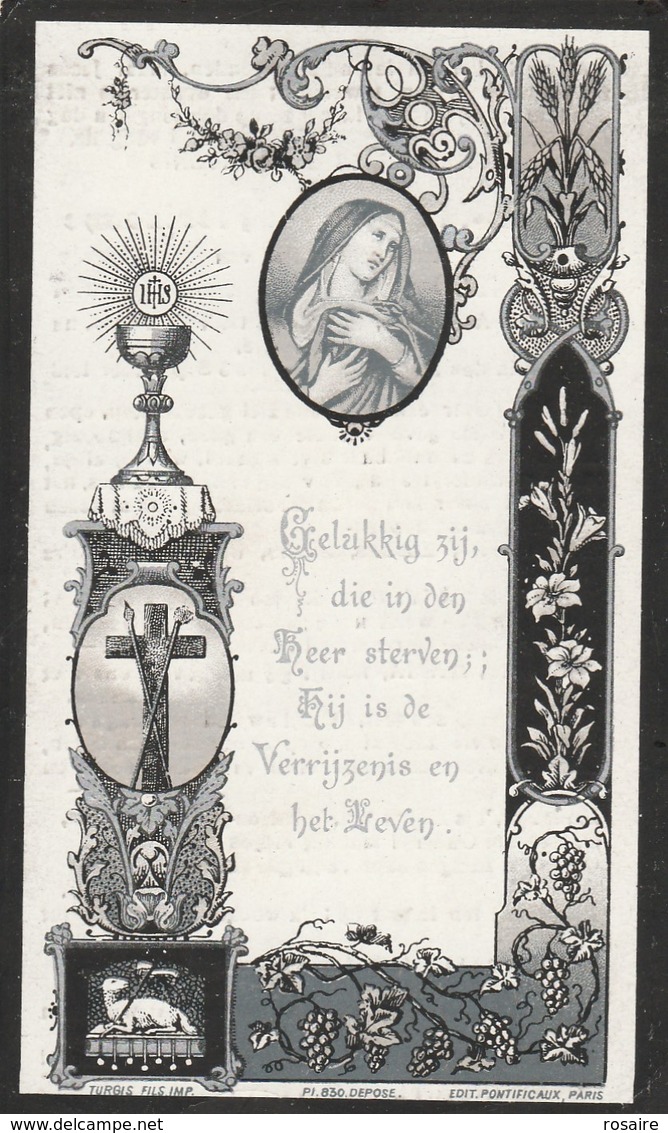 IHS
Gelukkig zij,
die in den
Heer sterven;;
Hij is de
Verrijzenis en
het Leven.
TURGIS FILS.IMP. PI.830.DEPOSE. EDIT.PONTIFICAUX, PARIS
rosaire